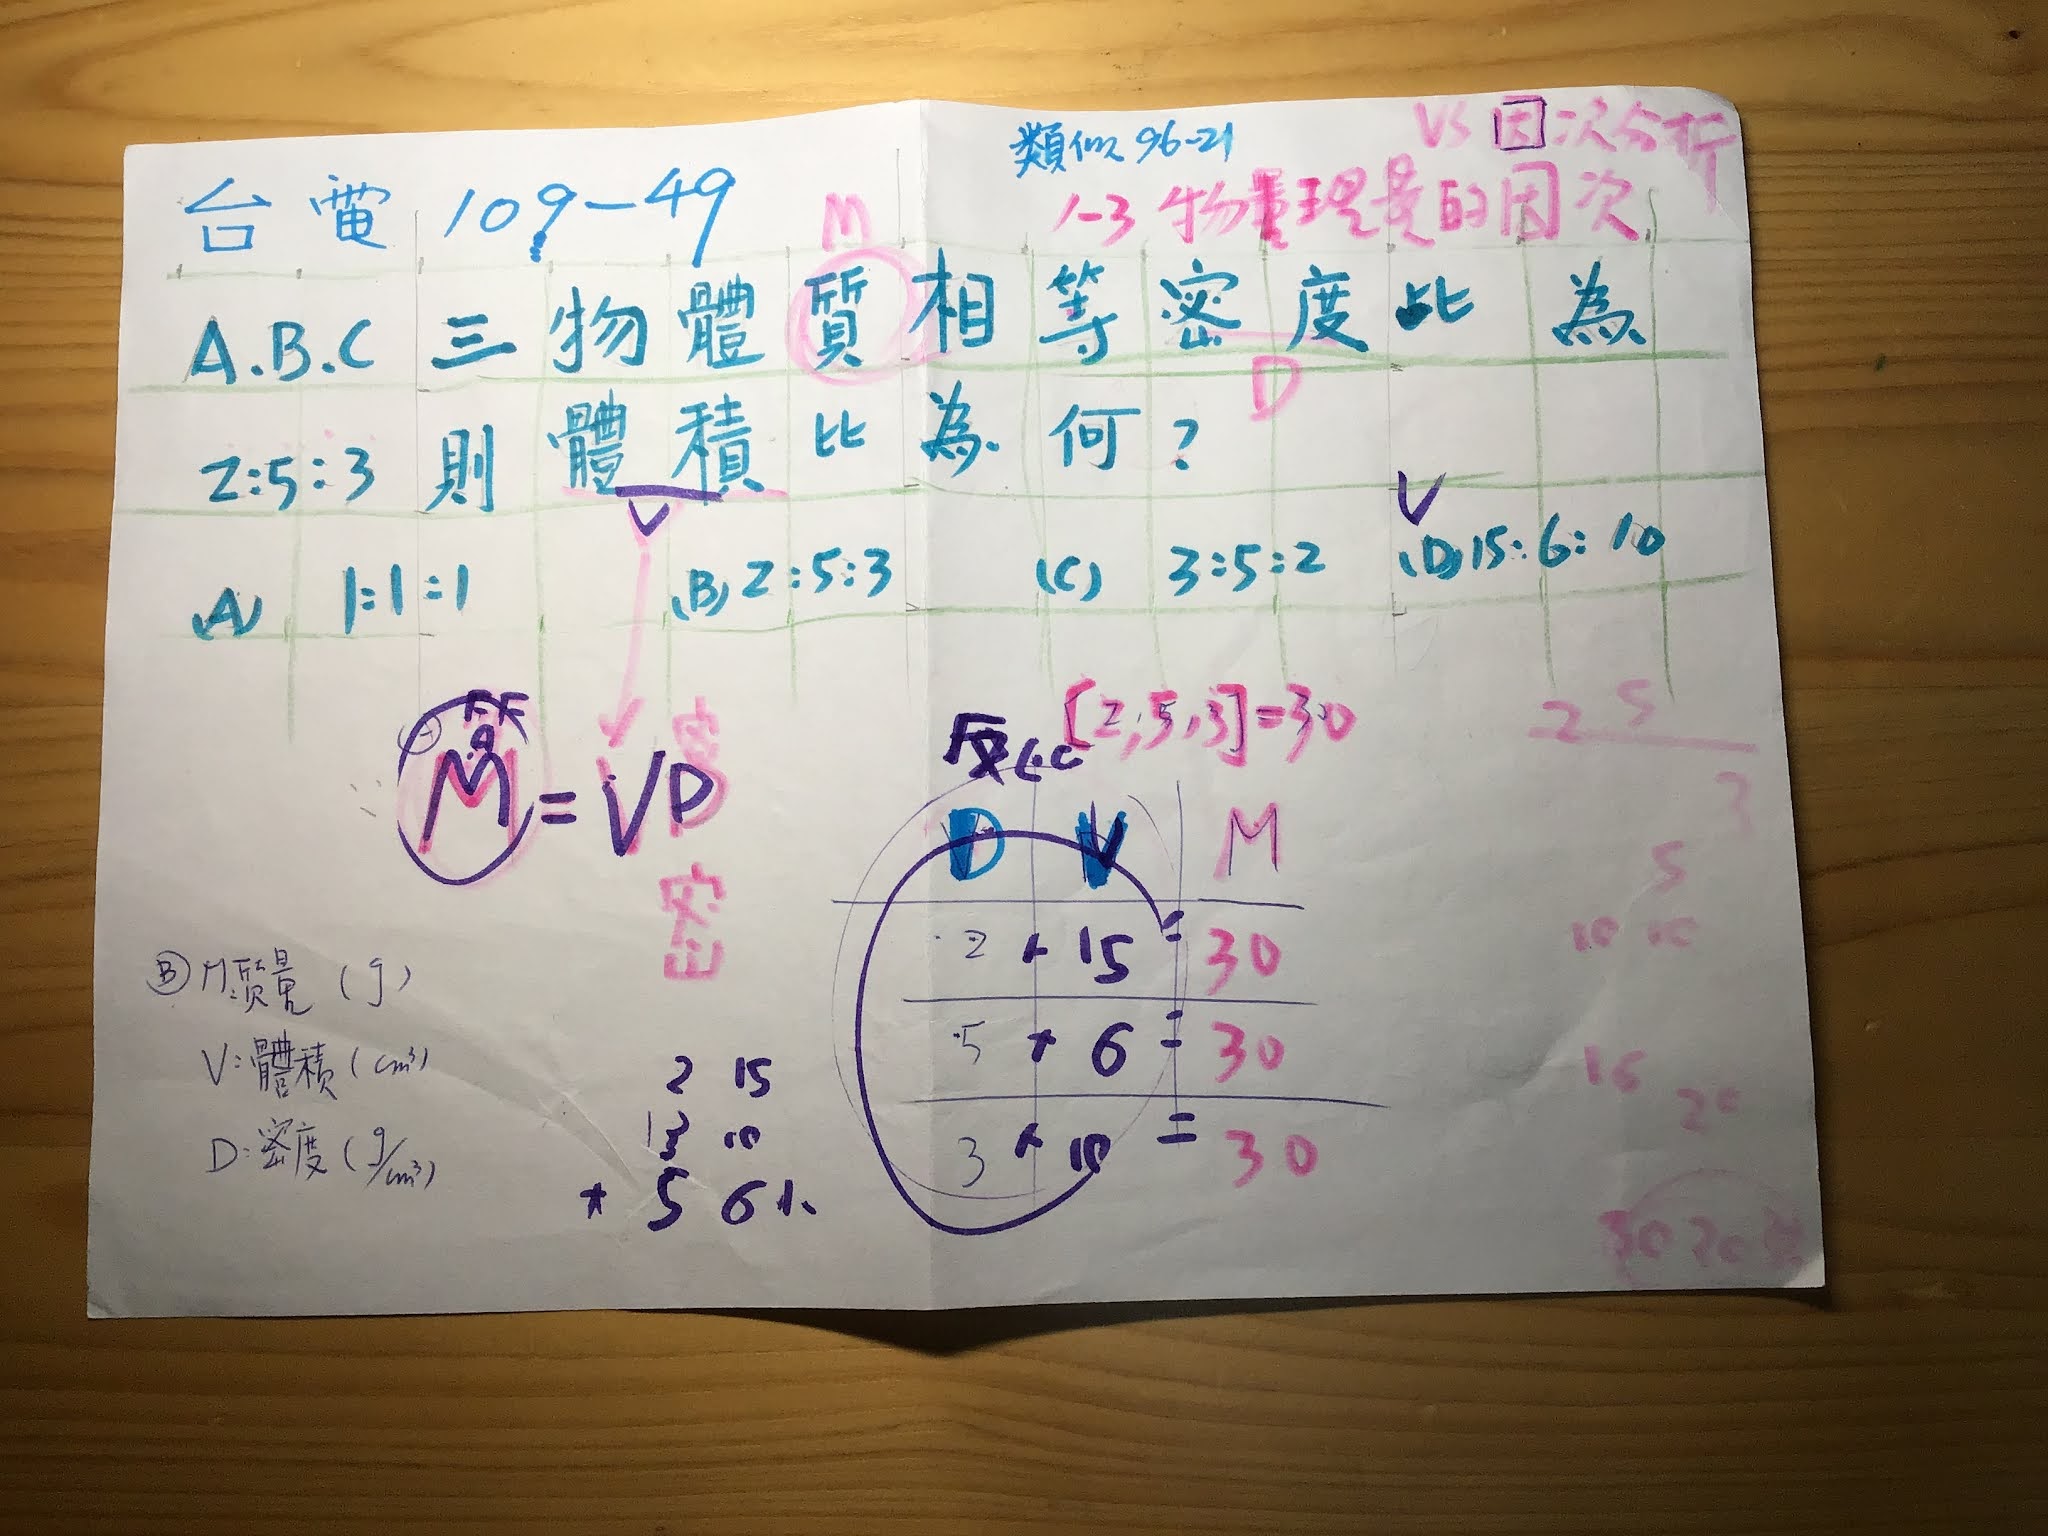 類似 96-21
VS 因次分析
台電 109-49
1-3 物量理量的因次
M
A.B.C 三物體質相等密度比為
D
2:5:3 則體積比為何?
V
V
(A) 1:1:1 (B) 2:5:3 (C) 3:5:2 (D) 15:6:10
[2,5,3]=30
M = VD
密
密
g
D V M
2 × 15 = 30
5 × 6 = 30
3 × 10 = 30
B M:質量 (g)
V:體積 (cm³)
D:密度 (g/cm³)
2 15
3 10
5 6
2 5
3
5
10 10